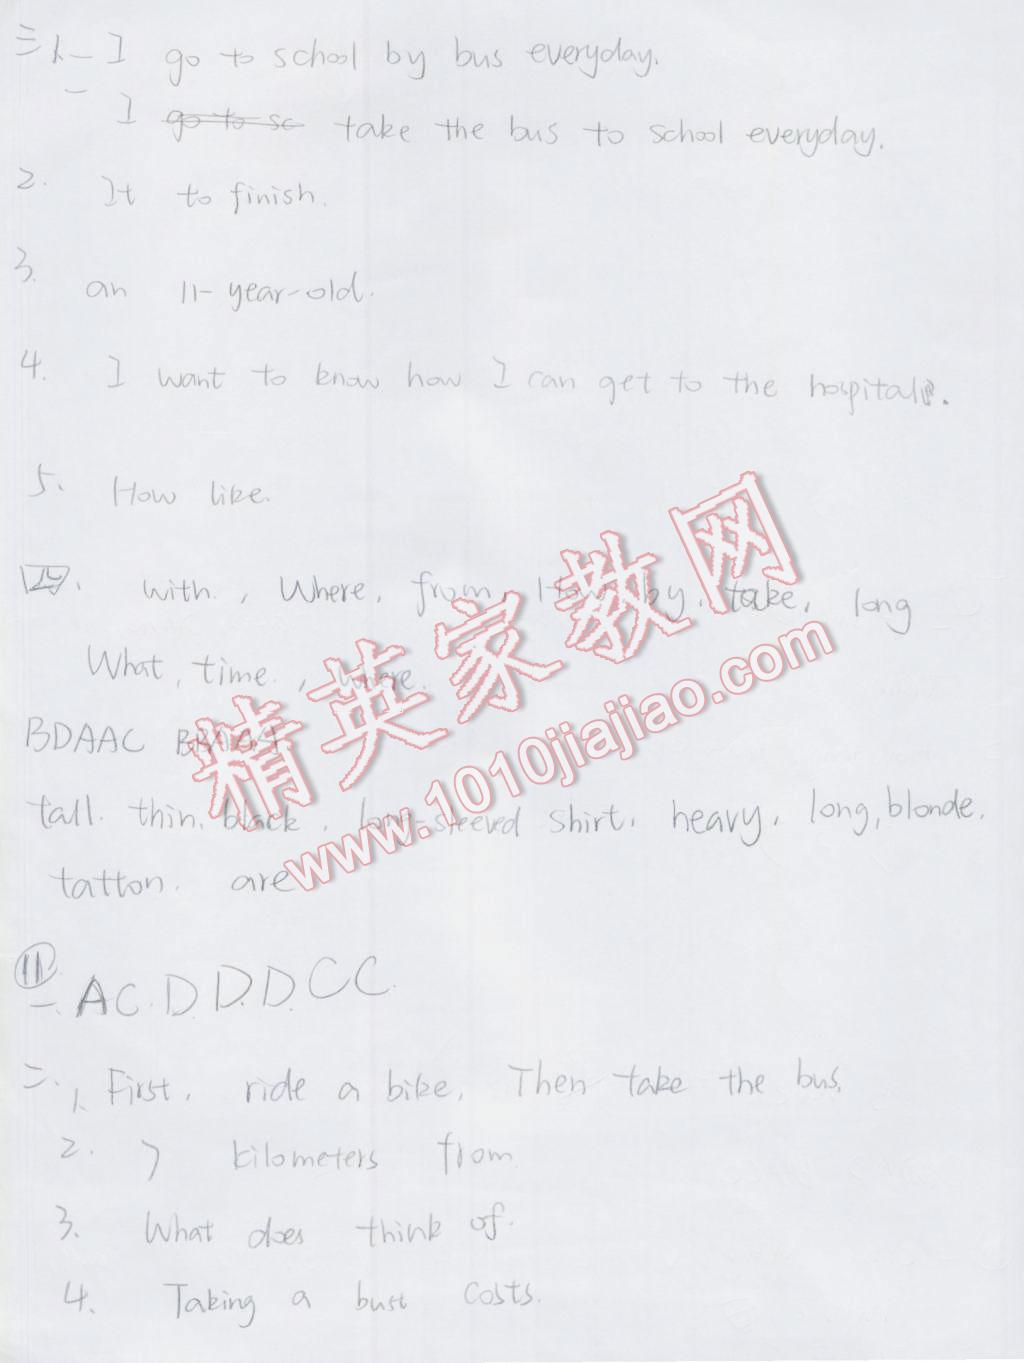 三、一 I go to school by bus everyday.
I go to sc take the bus to school everyday.
2. It to finish.
3. an 11-year-old.
4. I want to know how I can get to the hospital.
5. How like.
四. with., Where, from, How, by, take, long
What, time., where.
BDAAC
tall. thin. black, long-sleeved shirt, heavy, long, blonde.
tatton. are
精英家教网
www.1010jiajiao.com
11
一. A C. D. D. D. C C.
二. 1、First, ride a bike, Then take the bus.
2. 7 kilometers from
3. What does think of.
4. Taking a bust costs.